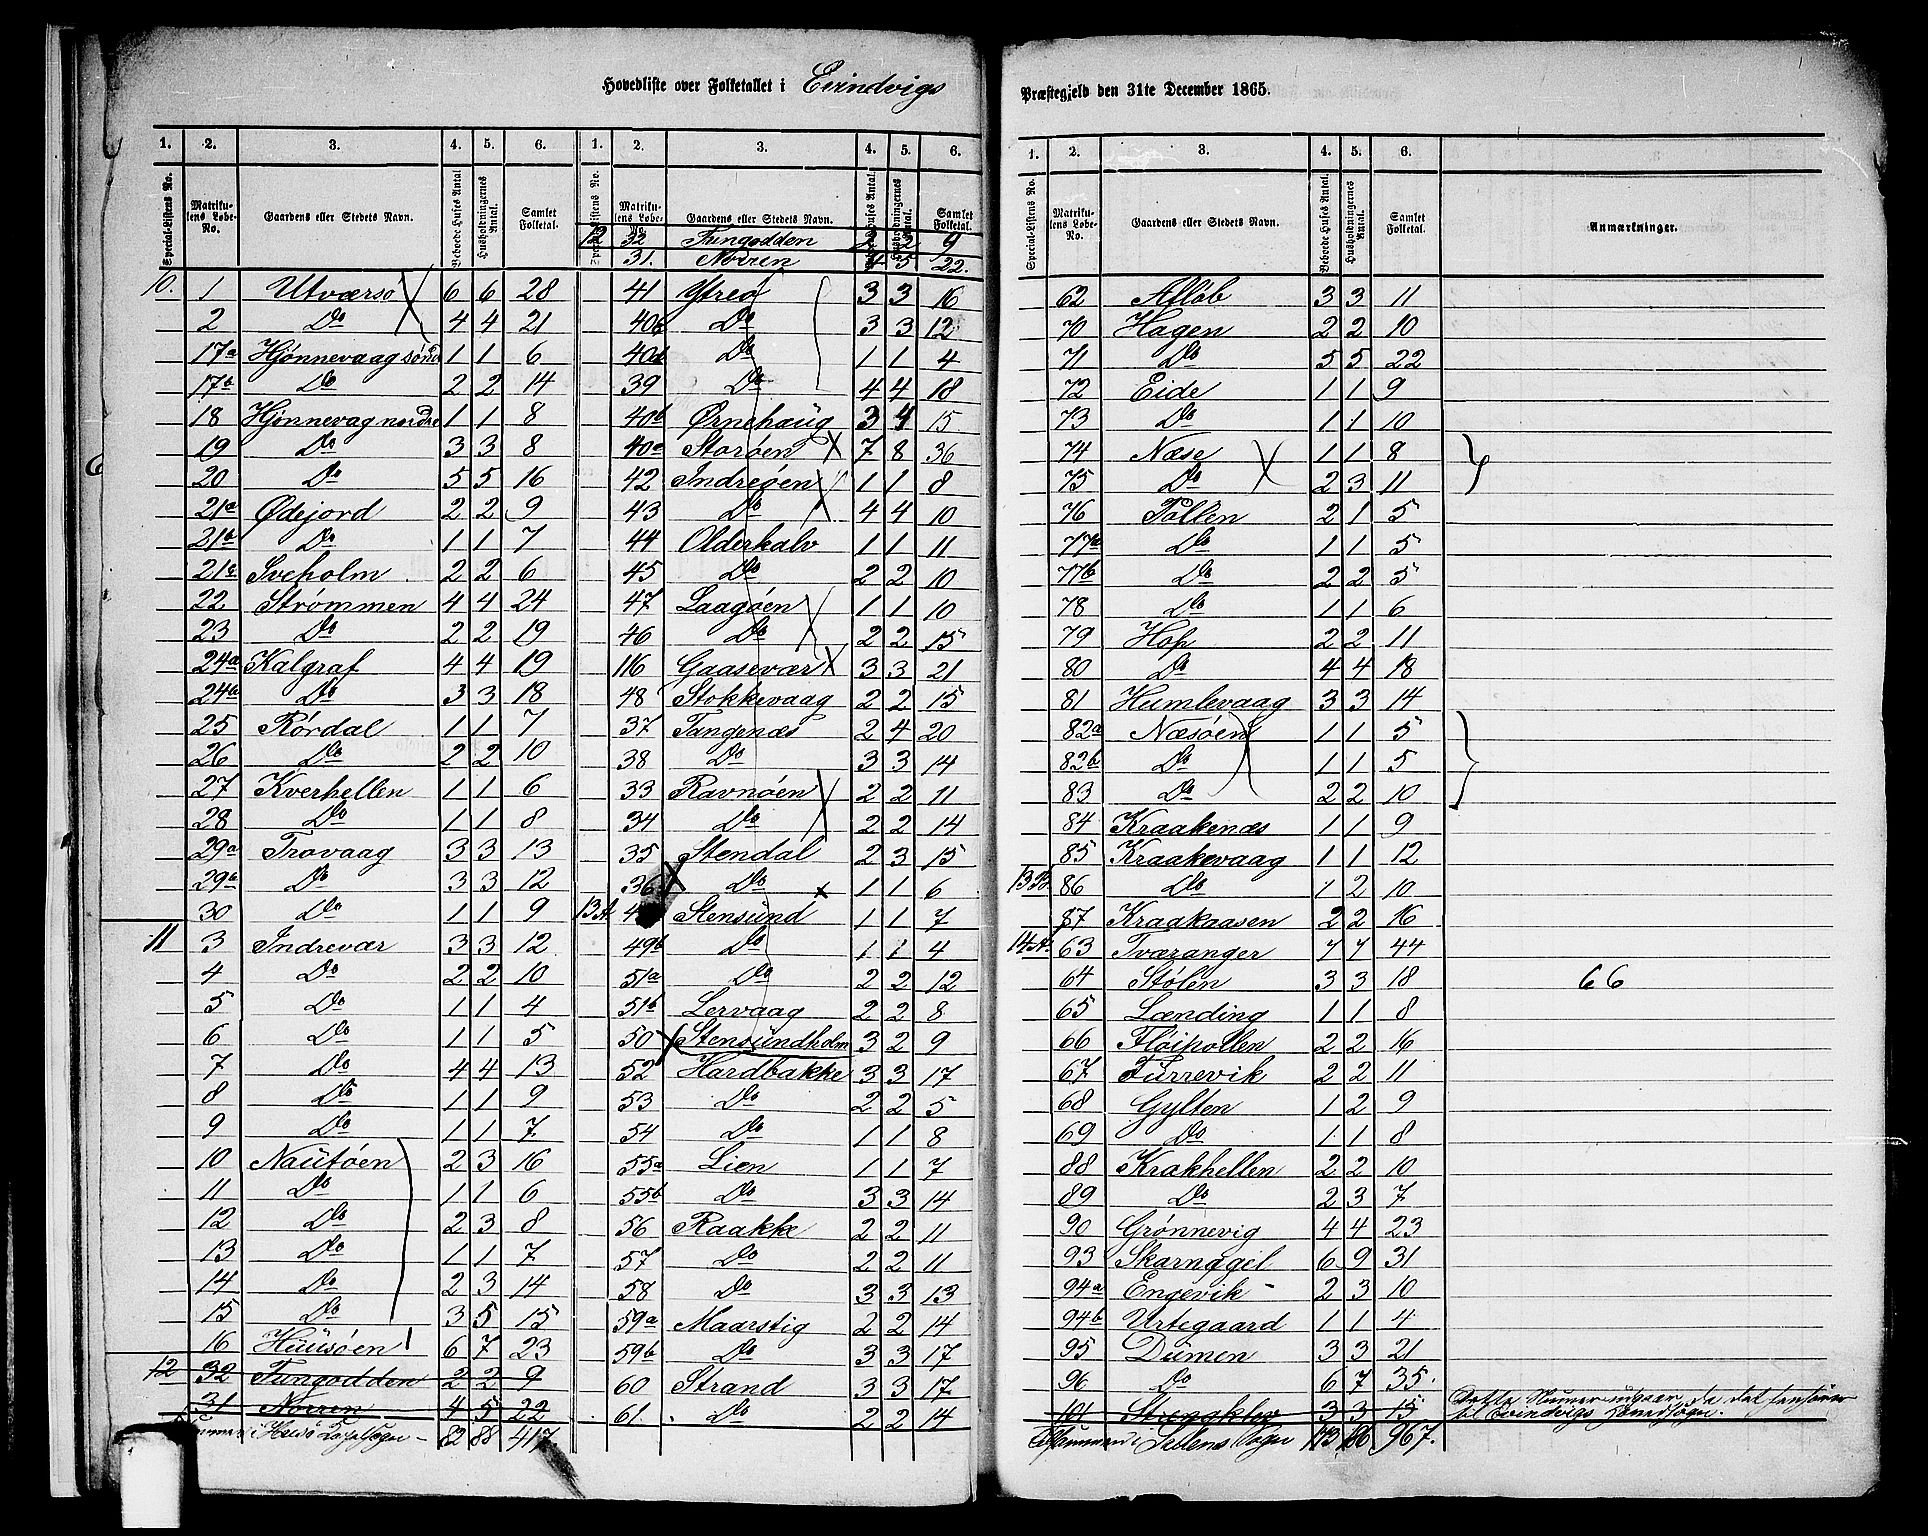 Hovedliste over Folketallet i Evindvigs
Præstegjeld den 31te December 1865.
1. 2. 3. 4. 5. 6. 1. 2. 3. 4. 5. 6.
Special-Listens No. Matrikulens Løbe-No. Gaardens eller Stedets Navn. Beboede Huses Antal Husholdningernes Antal. Samlet Folketal.
12 32 Tungodden 2 2 9
31. Norren 4 5 22.
10. 1 Utværsø 6 6 28
2 Do 4 4 21
17a Hjønnevaag søndr 1 1 6
17b Do 2 2 14
18 Hjønnevag nordre 1 1 8
19 Do 3 3 8
20 Do 5 5 16
21a Ødejord 2 2 9
21b Do 1 1 7
21c Sveholm 2 2 6
22 Strømmen 4 4 24
23 Do 2 2 19
24a Kalgraf 4 4 19
24b Do 3 3 18
25 Rørdal 1 1 7
26 Do 2 2 10
27 Kverhellen 1 1 6
28 Do 1 1 8
29a Trovaag 3 3 13
29b Do 3 3 12
30 Do 1 1 9
11 3 Indrevær 3 3 12
4 Do 2 2 10
5 Do 1 1 4
6 Do 1 1 5
7 Do 4 4 13
8 Do 1 1 9
9 Do 1 1 7
10 Nautøen 2 3 16
11 Do 1 1 6
12 Do 2 3 8
13 Do 1 1 7
14 Do 2 3 14
15 Do 3 5 15
16 Huusøen 6 7 23
12 32 Tungodden 2 2 9
31 Norren 4 5 22
82 88 417
41 Ytreø 3 3 16
40c Do 3 3 12
40d Do 1 1 4
39 Do 4 4 18
40b Ørnehaug 3 4 15
40a Storøen 7 8 36
42 Indreøen 1 1 8
43 Do 4 4 10
44 Olderkalv 1 1 11
45 Do 2 2 10
47 Laagøen 1 1 10
46 Do 2 2 15
116 Gaasevær 3 3 21
48 Stokkevaag 2 2 15
37 Tangenæs 2 4 20
38 Do 3 3 14
33 Ravnøen 2 2 11
34 Do 2 2 14
35 Stendal 2 3 15
36 Do 1 1 6
13A. Stensund 1 1 7
49b Do 1 1 4
51a Do 2 2 12
51b Lervaag 2 2 8
50 Stensundholm 3 2 9
52 Hardbakke 3 3 17
53 Do 2 2 5
54 Do 1 1 8
55a Lien 1 1 7
55b Do 3 3 14
56 Raakke 2 2 11
57 Do 2 2 11
58 Do 3 3 13
59a Maarstig 2 2 14
59b Do 3 3 17
60 Strand 3 3 17
61. Do 2 2 14
1. 2. 3. 4. 5. 6.
Special-Listens No. Matrikulens Løbe-No. Gaardens eller Stedets Navn. Beboede Huses Antal. Husholdningernes Antal. Samlet Folketal. Anmærkninger.
62 Afløb 3 3 11
70 Hagen 2 2 10
71 Do 5 5 22
72 Eide 1 1 9
73 Do 1 1 10
74 Næse 1 1 8
75 Do 2 3 11
76 Pollen 2 1 5
77a Do 1 1 5
77b Do 2 2 5
78 Do 1 1 6
79 Hop 2 2 11
80 Do 4 4 18
81 Humlevaag 3 3 14
82a Næsøen 1 1 5
82b Do 1 1 5
83 Do 2 2 10
84 Kraakenæs 1 1 9
85 Kraakevaag 1 1 12
13B. 86 Do 1 2 10
87 Kraakaasen 2 2 16
14A. 63 Tværanger 7 7 44
64 Stølen 3 3 18 66
65 Lænding 1 1 8
66 Fløipollen 2 2 16
67 Furrevik 2 2 11
68 Gylten 1 2 9
69 Do 1 1 8
88 Krakhellen 2 2 10
89 Do 2 3 7
90 Grønnevig 4 4 23
93 Skarnøgel 6 9 31
94a Engevik 2 3 10
94b Urtegaard 1 1 4
95 Dumen 3 3 21
96 Do 6 7 35.
101 3 3 15 Dette Numer udgaar da det henhører til Evindvigs Hovedsogn.
Tilsammen i Sogn 967.